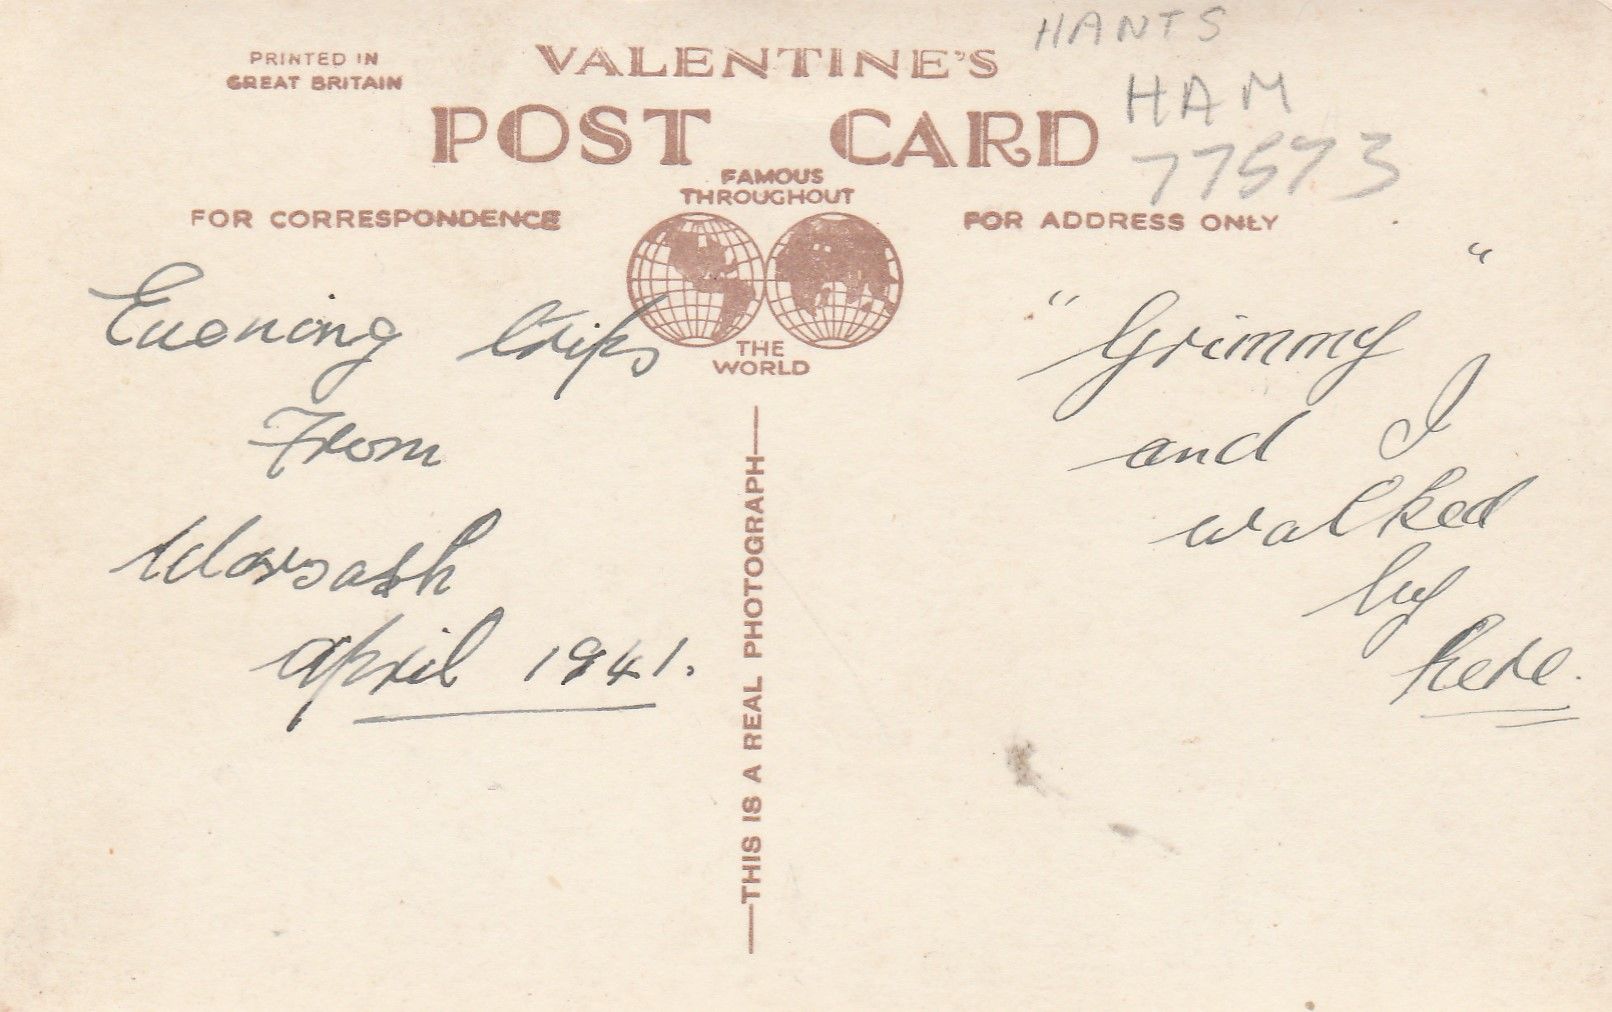 HANTS
HAM
77573
PRINTED IN
GREAT BRITAIN
VALENTINE'S
POST CARD
FAMOUS
THROUGHOUT
THE
WORLD
FOR CORRESPONDENCE
FOR ADDRESS ONLY
Evening trips
From
Warsash
april 1941.
THIS IS A REAL PHOTOGRAPH
"Grimmy"
and I
walked
by
here.